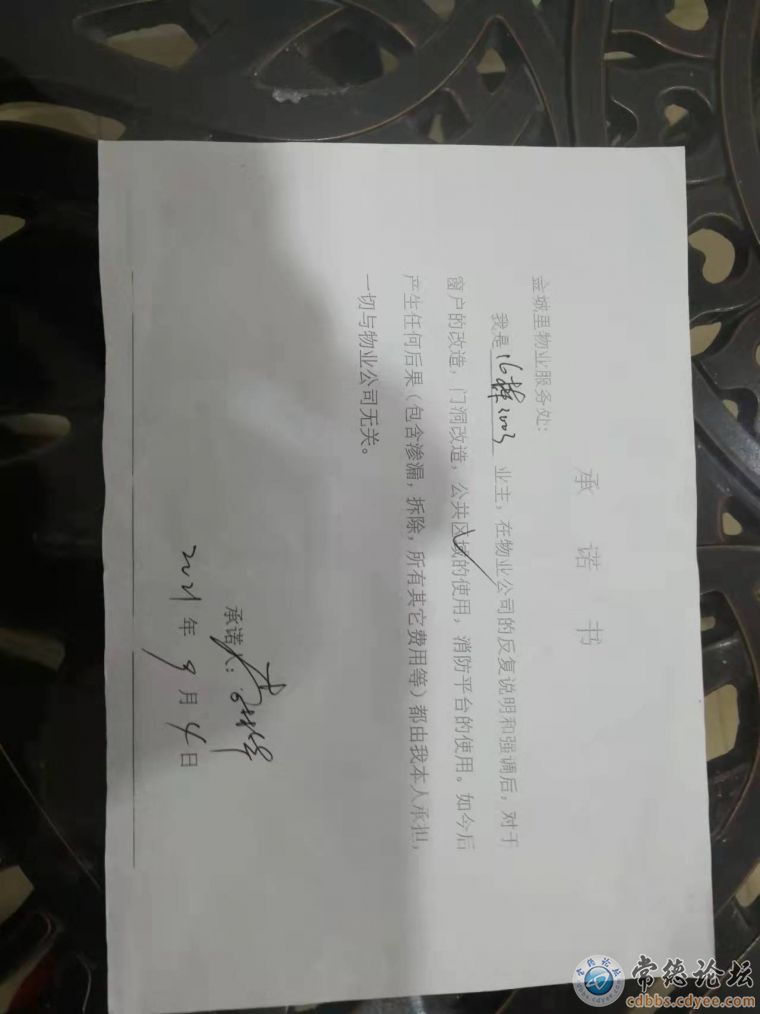 承诺书
金城里物业服务处：
我是16栋2003 业主，在物业公司的反复说明和强调后，对于
窗户的改造，门洞改造，公共区域的使用，消防平台的使用。如今后
产生任何后果（包含渗漏，拆除，所有其它费用等）都由我本人承担，
一切与物业公司无关。
承诺人：
2021年9月4日
常德论坛
cdbbs.cdyee.com